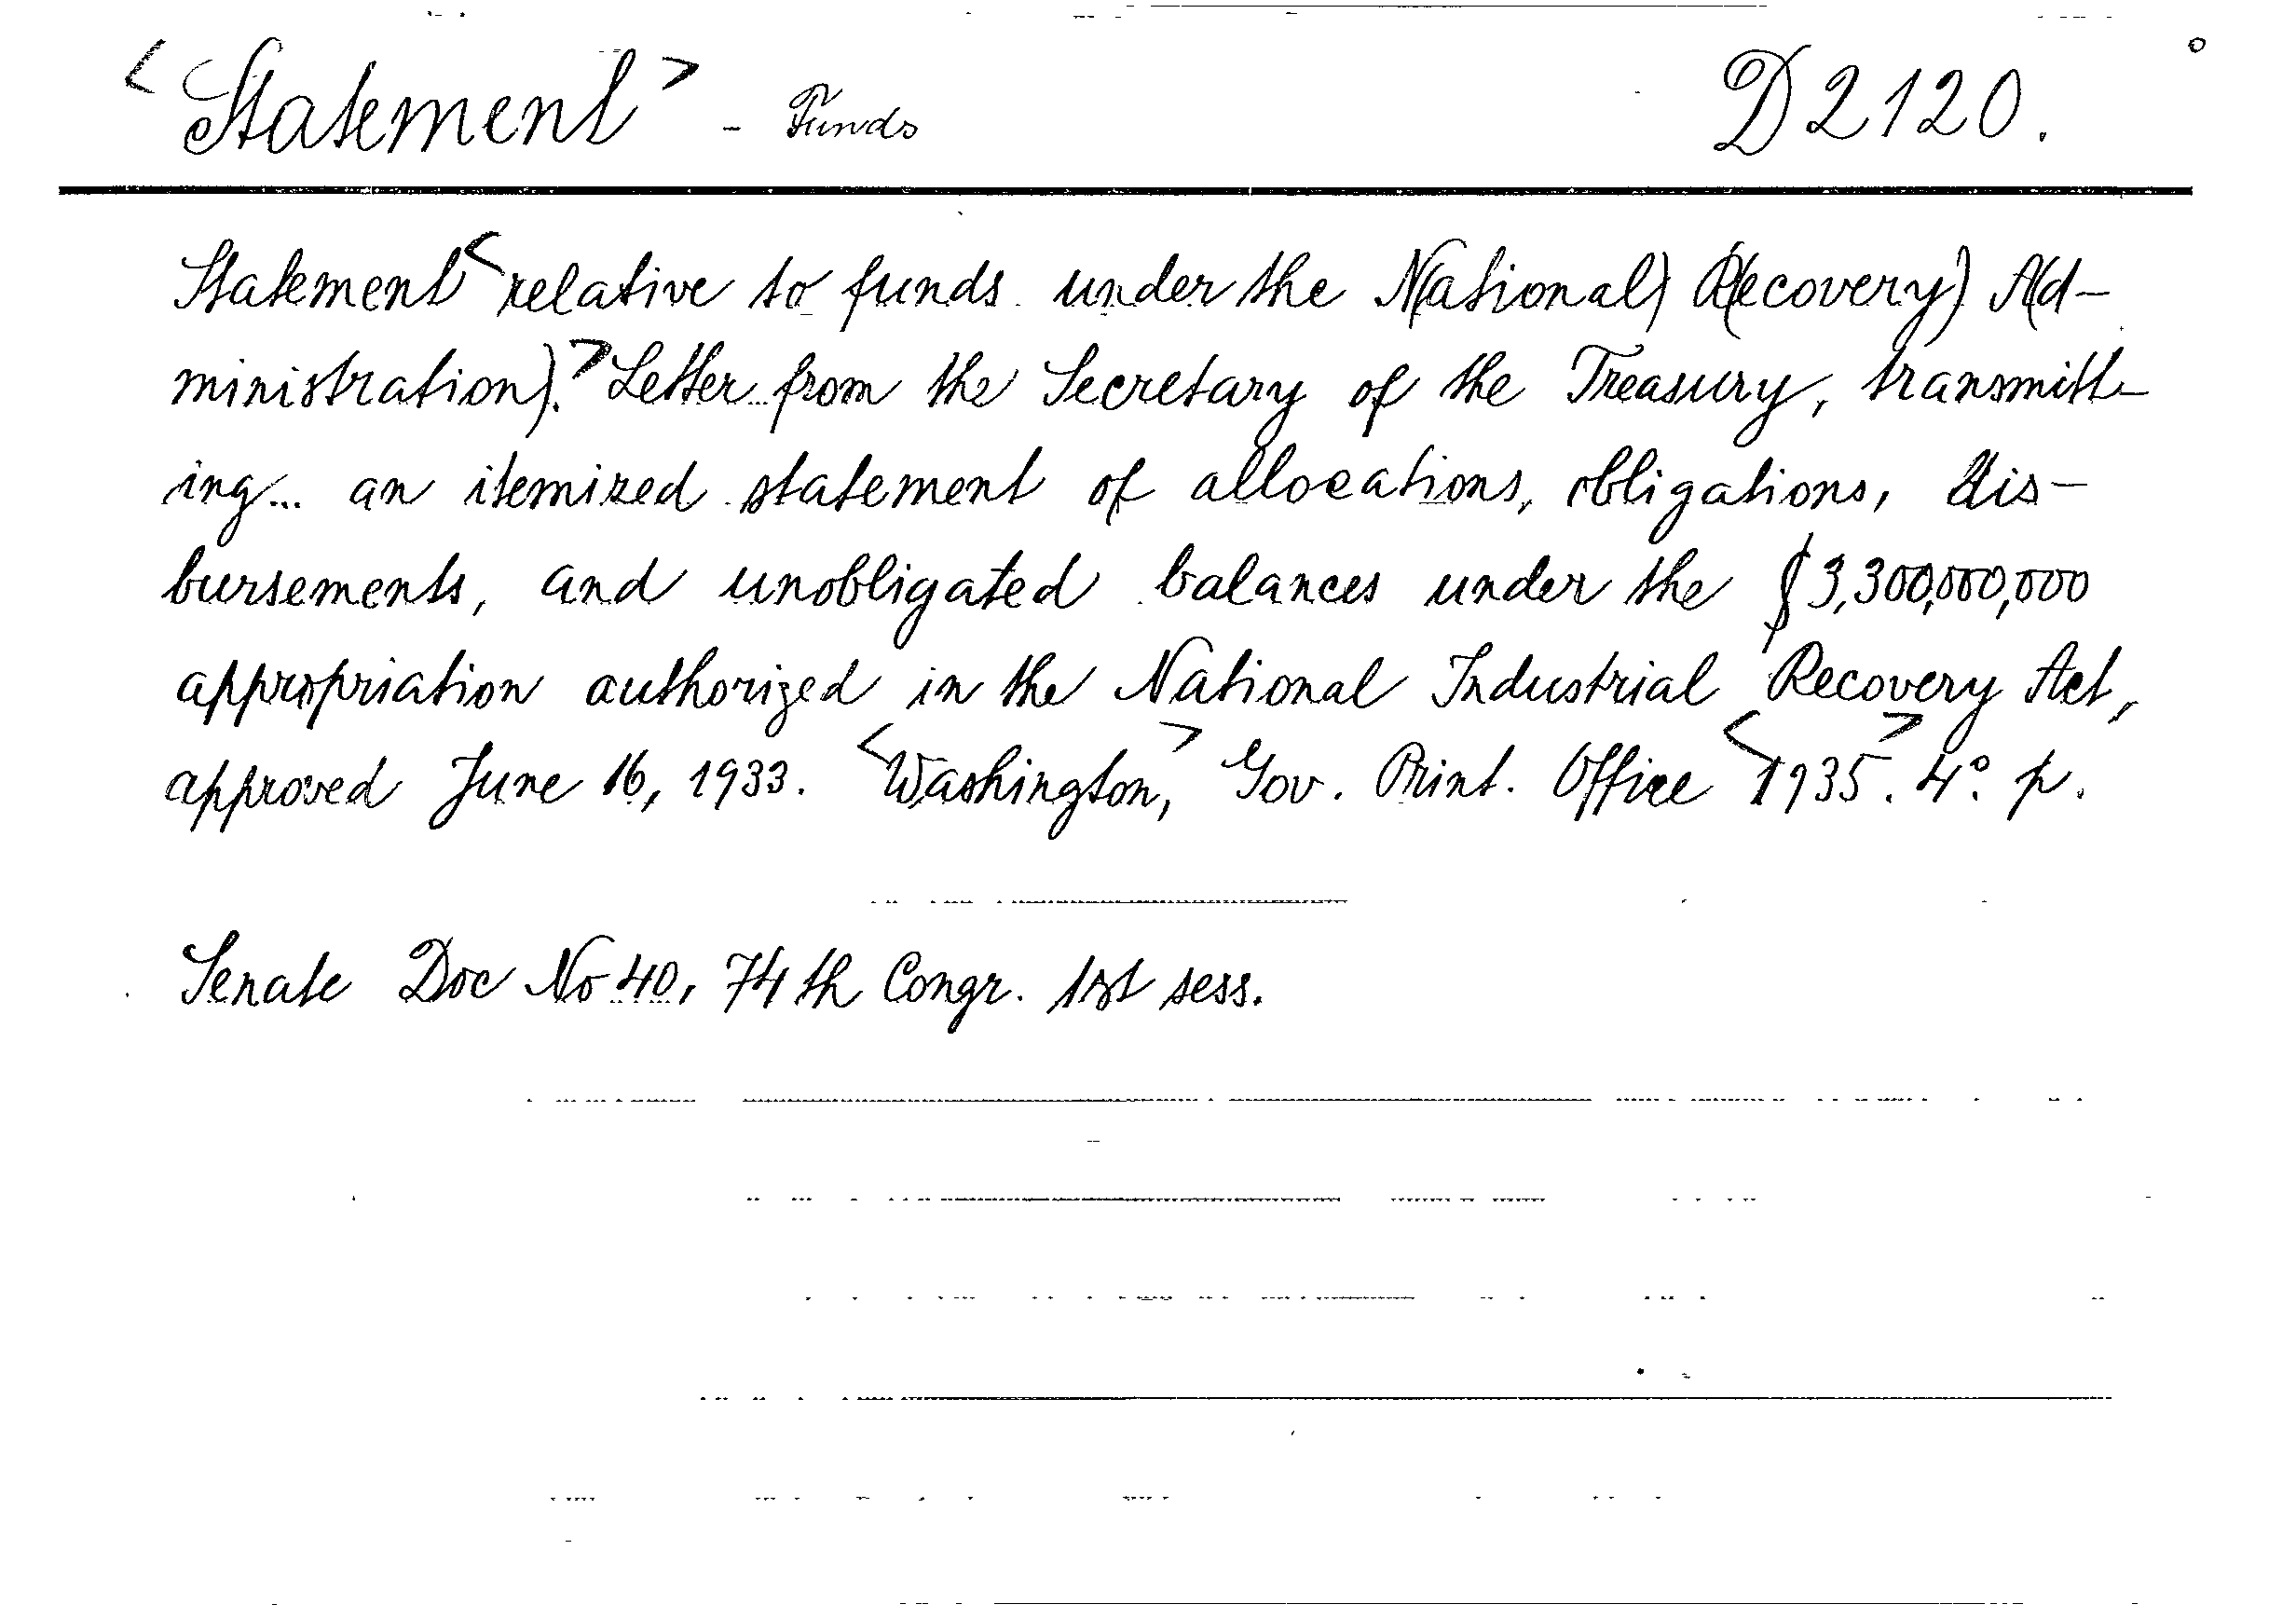 <Statement> - Funds D2120.
Statement <relative to funds under the N(ational) R(ecovery) A(d-
ministration).> Letter from the Secretary of the Treasury, transmitt-
ing... an itemized statement of allocations, obligations, dis-
bursements, and unobligated balances under the $3,300,000,000
appropriation authorized in the National Industrial Recovery Act,
approved June 16, 1933. <Washington,> Gov. Print. Office <1935>. 4°. p.
Senate Doc No 40, 74th Congr. 1st sess.